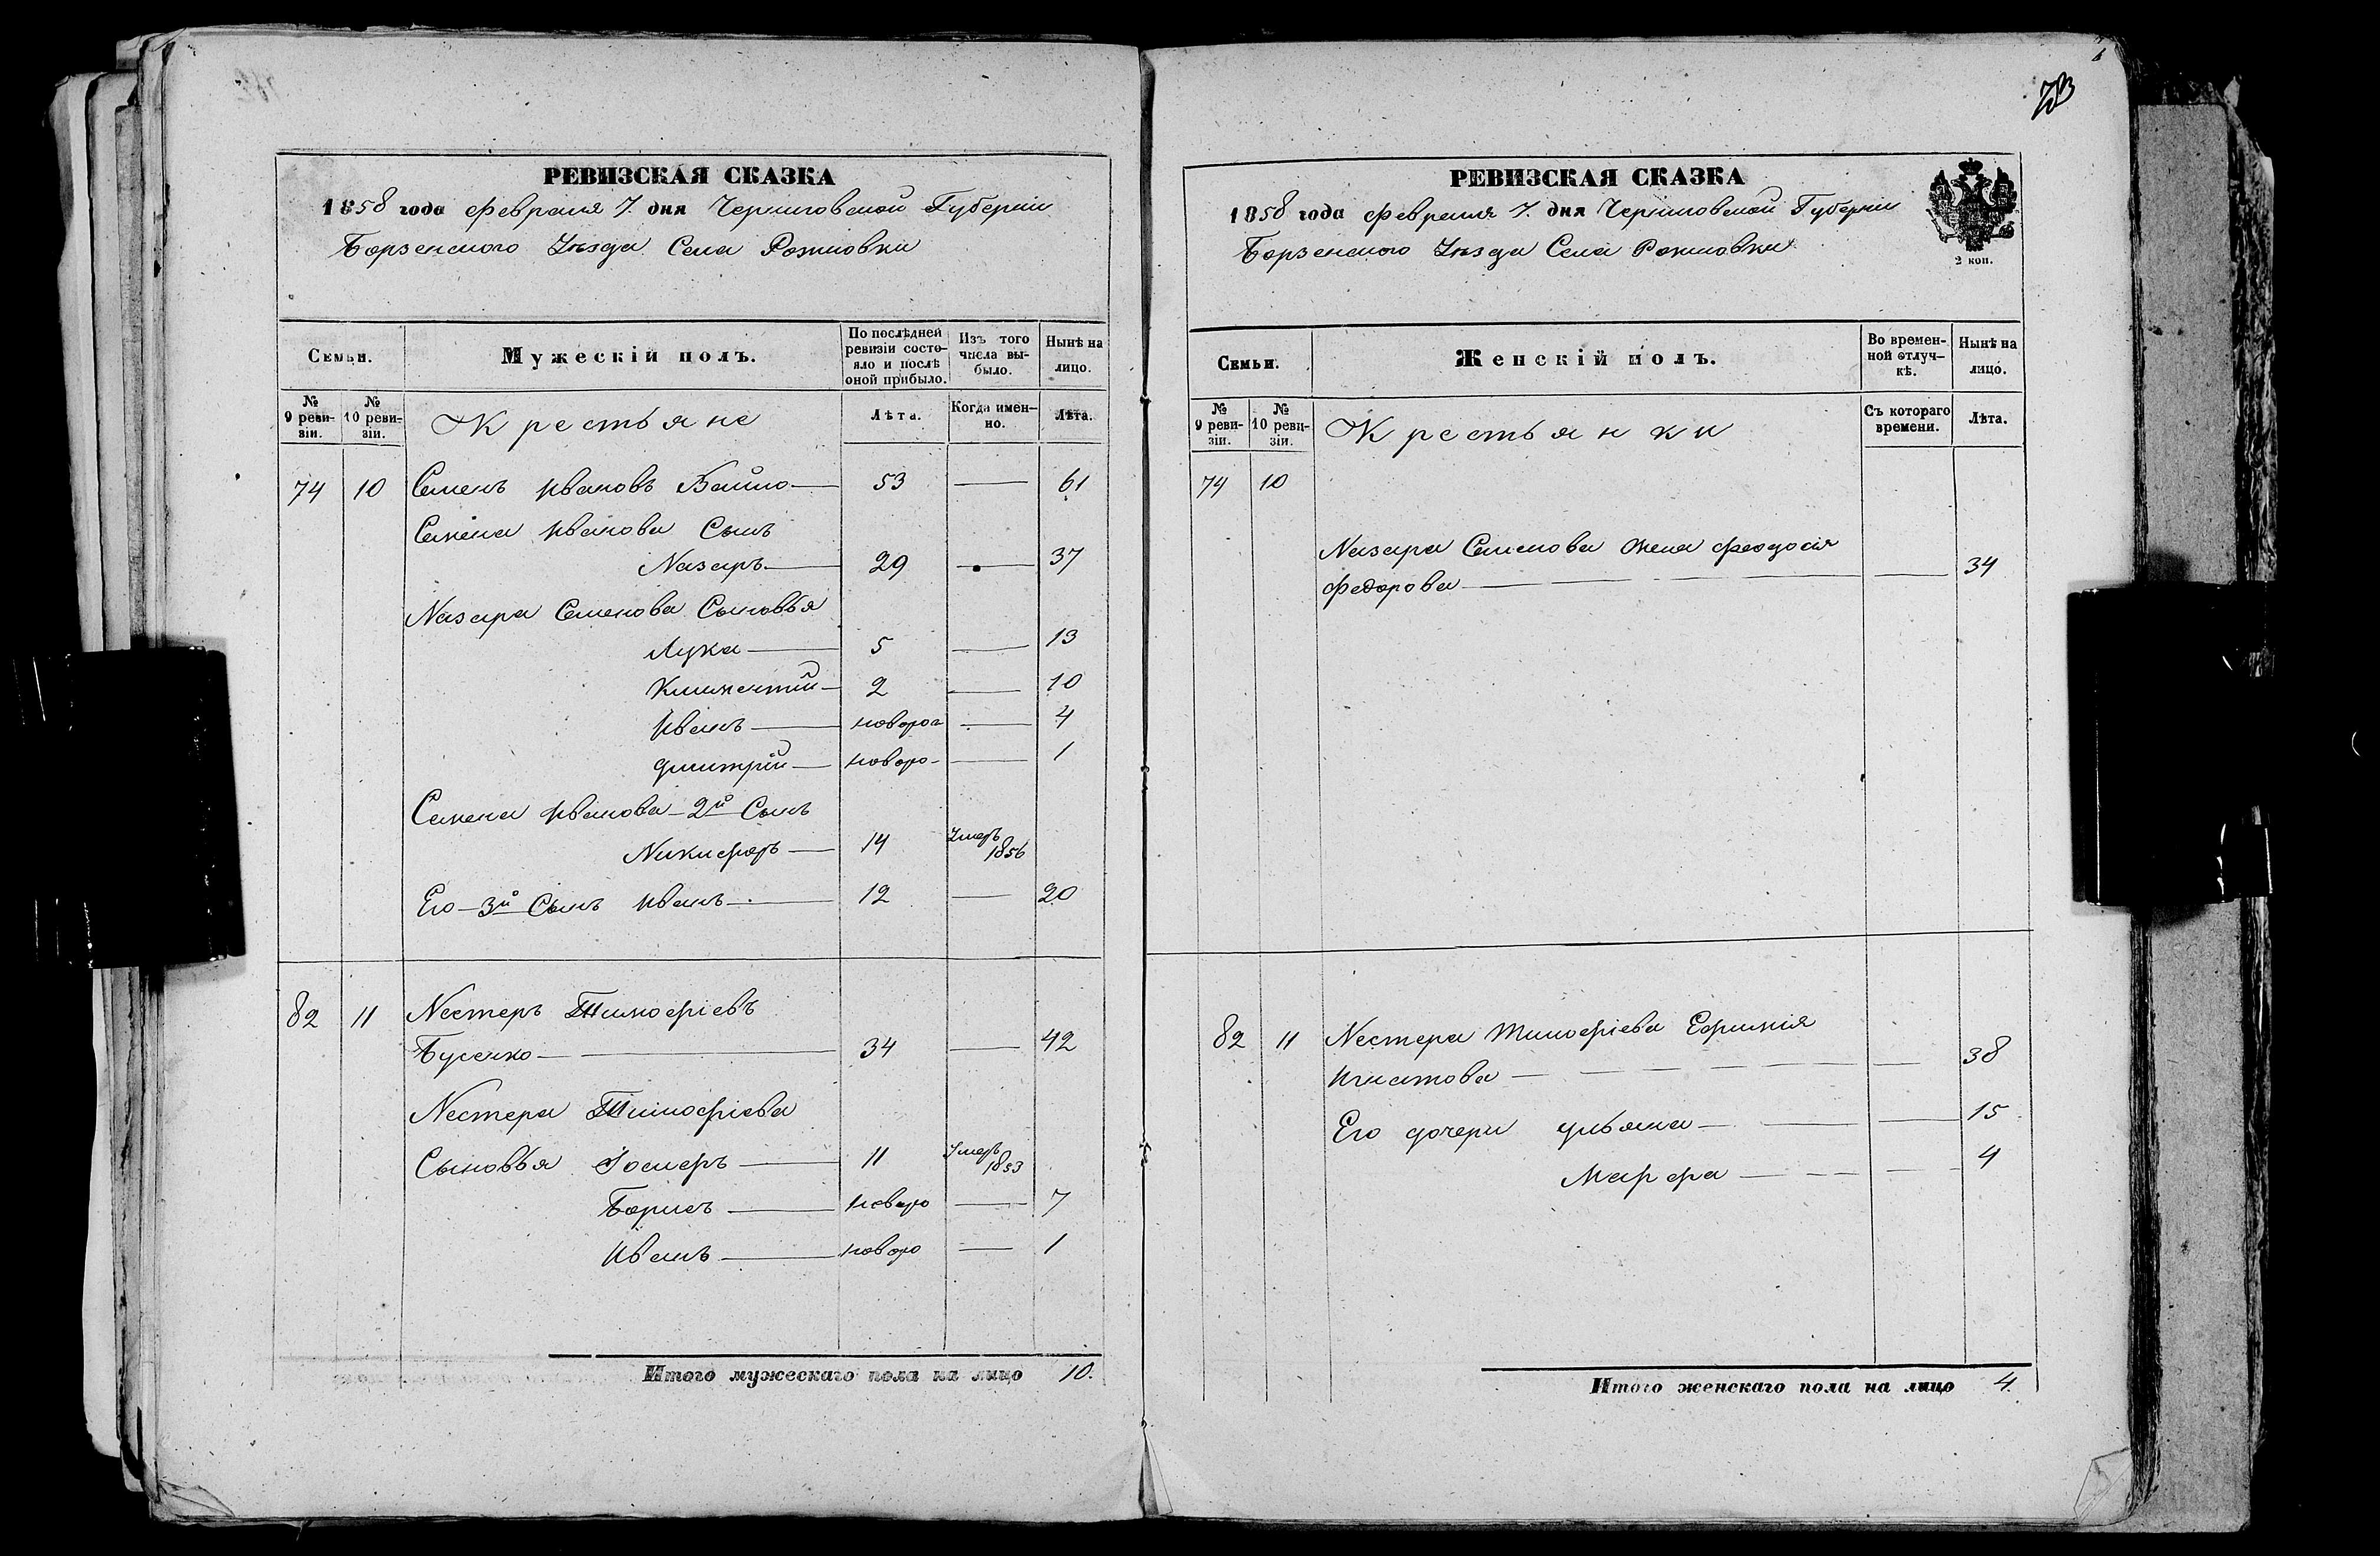 РЕВИЗСКАЯ СКАЗКА
1858 года Февраля 7. дня Черниговской Губерніи
Борзенского Уѣзда Села Рожновки
Семьи.
Мужескій полъ.
По послѣдней ревизіи состояло и послѣ оной прибыло.
Изъ того числа выбыло.
Нынѣ на лицо.
№ 9 ревизіи.
№ 10 ревизіи.
Крестьяне
Лѣта.
Когда именно.
Лѣта.
74 10 Семенъ Ивановъ Байло 53 — 61
Семена Иванова Сынъ
Назаръ 29 — 37
Назара Семенова Сыновья
Лука 5 — 13
Климентий 2 — 10
Иванъ новорож — 4
Дмитрій новоро — 1
Семена Иванова 2й Сынъ
Никифоръ 14 Умеръ 1856
Его 3й Сынъ Иванъ 12 — 20
82 11 Нестеръ Тимофіевъ
Бусенко 34 — 42
Нестера Тимофіева
Сыновья Іосифъ 11 Умеръ 1853
Борисъ новоро — 7
Иванъ новоро — 1
Итого мужескаго пола на лицо 10.
783
РЕВИЗСКАЯ СКАЗКА
1858 года Февраля 7. дня Черниговской Губерніи
Борзенского Уѣзда Села Рожновки
2 коп.
Семьи.
Женскій полъ.
Во временной отлучкѣ.
Нынѣ на лицо.
№ 9 ревизіи.
№ 10 ревизіи.
Крестьянки
Съ котораго времени.
Лѣта.
74 10
Назара Семенова жена Феодосія
Федорова — 34
82 11 Нестера Тимофіева Ефимія
Игнатова — 38
Его дочери Ульяна — 15
Марфа — 4
Итого женскаго пола на лицо 4.